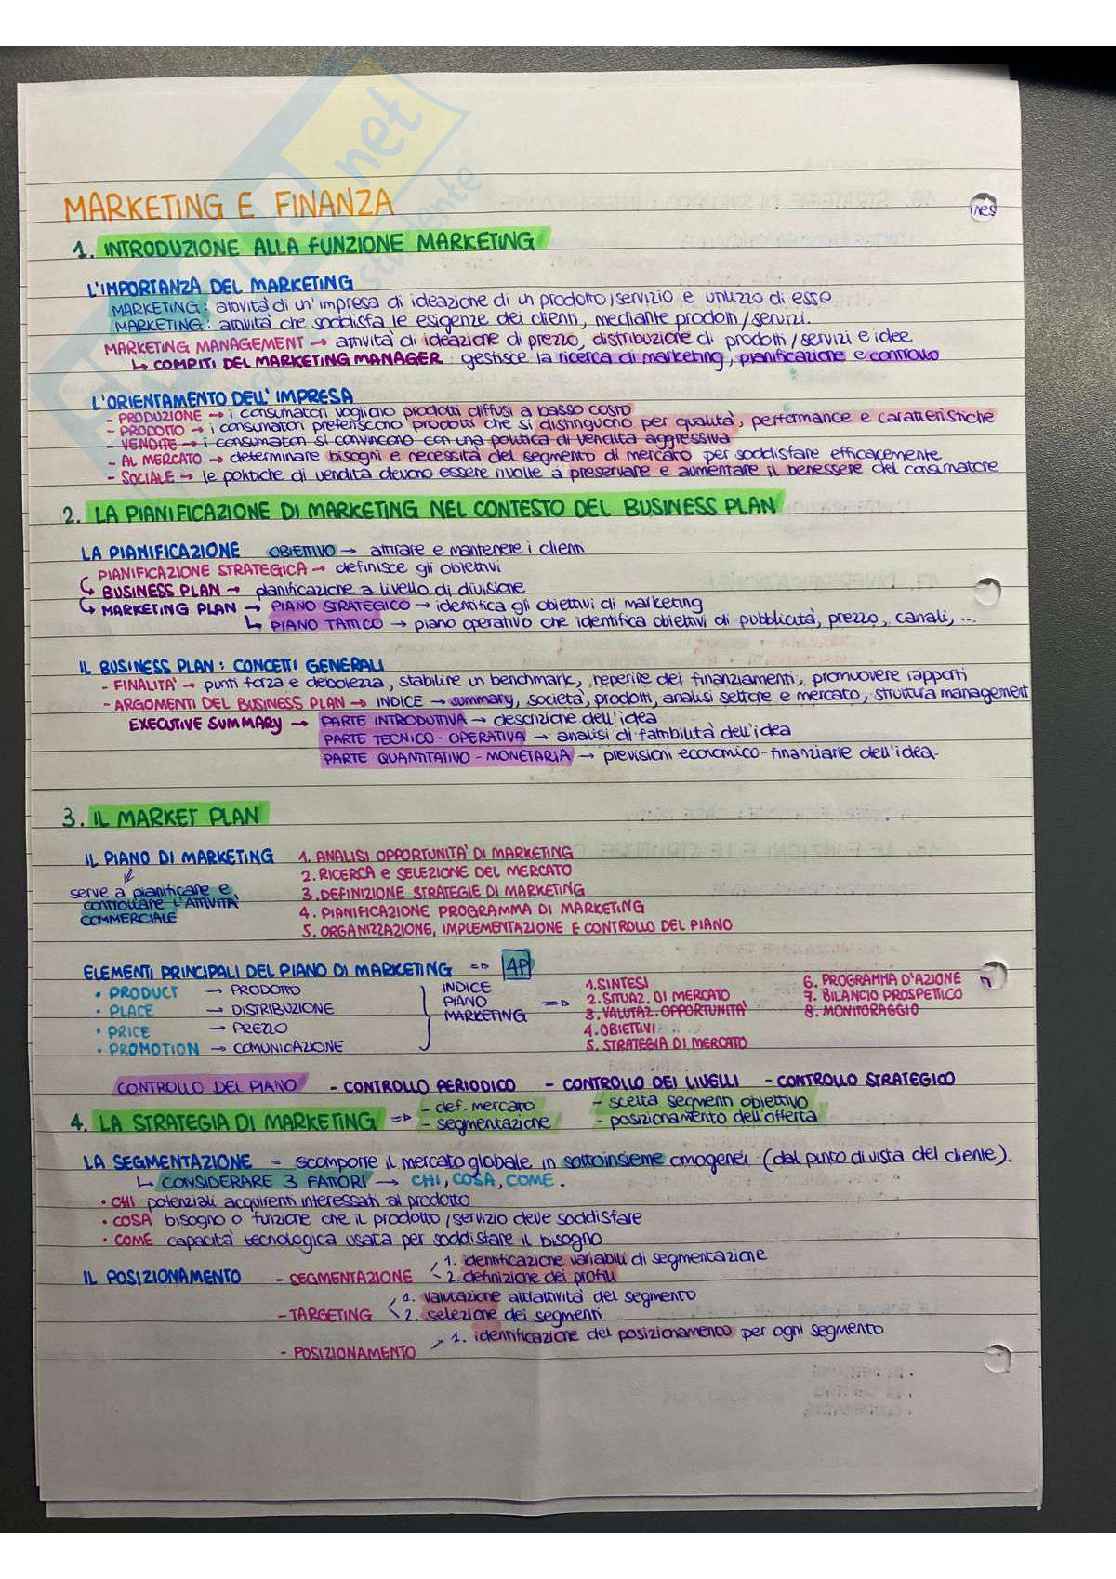 MARKETING E FINANZA
1. INTRODUZIONE ALLA FUNZIONE MARKETING
L'IMPORTANZA DEL MARKETING
MARKETING: attività di un'impresa di ideazione di un prodotto/servizio e utilizzo di esso
MARKETING: attività che soddisfa le esigenze dei clienti, mediante prodotti/servizi.
MARKETING MANAGEMENT → attività di ideazione di prezzo, distribuzione di prodotti/servizi e idee
↳ COMPITI DEL MARKETING MANAGER: gestisce la ricerca di marketing, pianificazione e controllo
L'ORIENTAMENTO DELL'IMPRESA
- PRODUZIONE → i consumatori vogliono prodotti diffusi a basso costo
- PRODOTTO → i consumatori preferiscono prodotti che si distinguono per qualità, performance e caratteristiche
- VENDITE → i consumatori si convincono con una politica di vendita aggressiva
- AL MERCATO → determinare bisogni e necessità del segmento di mercato per soddisfare efficacemente
- SOCIALE → le politiche di vendita devono essere rivolte a preservare e aumentare il benessere del consumatore
2. LA PIANIFICAZIONE DI MARKETING NEL CONTESTO DEL BUSINESS PLAN
LA PIANIFICAZIONE OBIETTIVO → attirare e mantenere i clienti
PIANIFICAZIONE STRATEGICA → definisce gli obiettivi
↳ BUSINESS PLAN → pianificazione a livello di divisione
↳ MARKETING PLAN → PIANO STRATEGICO → identifica gli obiettivi di marketing
↳ PIANO TATTICO → piano operativo che identifica obiettivi di pubblicità, prezzo, canali, ...
IL BUSINESS PLAN: CONCETTI GENERALI
- FINALITA' → punti forza e debolezza, stabilire un benchmark, reperire dei finanziamenti, promuovere rapporti
- ARGOMENTI DEL BUSINESS PLAN → INDICE → summary, società, prodotti, analisi settore e mercato, struttura management
EXECUTIVE SUMMARY → PARTE INTRODUTTIVA → descrizione dell'idea
PARTE TECNICO-OPERATIVA → analisi di fattibilità dell'idea
PARTE QUANTITATIVO-MONETARIA → previsioni economico-finanziarie dell'idea.
3. IL MARKET PLAN
IL PIANO DI MARKETING 1. ANALISI OPPORTUNITA' DI MARKETING
2. RICERCA e SELEZIONE DEL MERCATO
serve a pianificare e 3. DEFINIZIONE STRATEGIE DI MARKETING
controllare L'ATTIVITÀ 4. PIANIFICAZIONE PROGRAMMA DI MARKETING
COMMERCIALE 5. ORGANIZZAZIONE, IMPLEMENTAZIONE E CONTROLLO DEL PIANO
ELEMENTI PRINCIPALI DEL PIANO DI MARKETING => 4P
• PRODUCT → PRODOTTO INDICE 1. SINTESI 6. PROGRAMMA D'AZIONE
• PLACE → DISTRIBUZIONE PIANO => 2. SITUAZ. DI MERCATO 7. BILANCIO PROSPETTICO
• PRICE → PREZZO MARKETING 3. VALUTAZ. OPPORTUNITA' 8. MONITORAGGIO
• PROMOTION → COMUNICAZIONE 4. OBIETTIVI
5. STRATEGIA DI MERCATO
CONTROLLO DEL PIANO - CONTROLLO PERIODICO - CONTROLLO DEI LIVELLI - CONTROLLO STRATEGICO
4. LA STRATEGIA DI MARKETING => - def. mercato - scelta segmenti obiettivo
- segmentazione - posizionamento dell'offerta
LA SEGMENTAZIONE - scomporre il mercato globale in sottoinsieme omogenei (dal punto di vista del cliente).
↳ CONSIDERARE 3 FATTORI → CHI, COSA, COME.
• CHI potenziali acquirenti interessati al prodotto
• COSA bisogno o funzione che il prodotto/servizio deve soddisfare
• COME capacità tecnologica usata per soddisfare il bisogno
IL POSIZIONAMENTO - SEGMENTAZIONE 1. identificazione variabili di segmentazione
2. definizione dei profili
- TARGETING 1. valutazione attrattività del segmento
2. selezione dei segmenti
- POSIZIONAMENTO 1. identificazione del posizionamento per ogni segmento